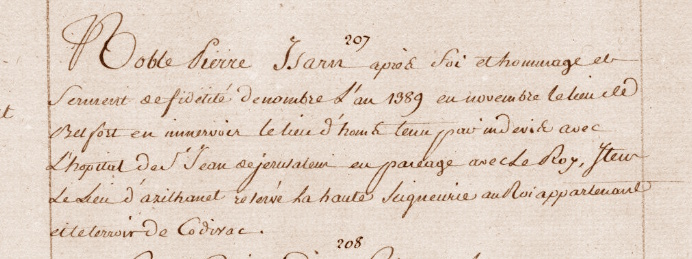 207
Noble Pierre Isarn après foi et hommage et
serment de fidélité denombre L'an 1389 en novembre le lieu de
Belfort en minervoir le lieu d'homs tenu par indevis avec
L'hopital de St Jean de jerusalem en pareage avec Le Roy, Item
Le Lieu d'azilhanet reservé la haute seigneurie au Roi appartenant
et le terroir de Codirac.
208